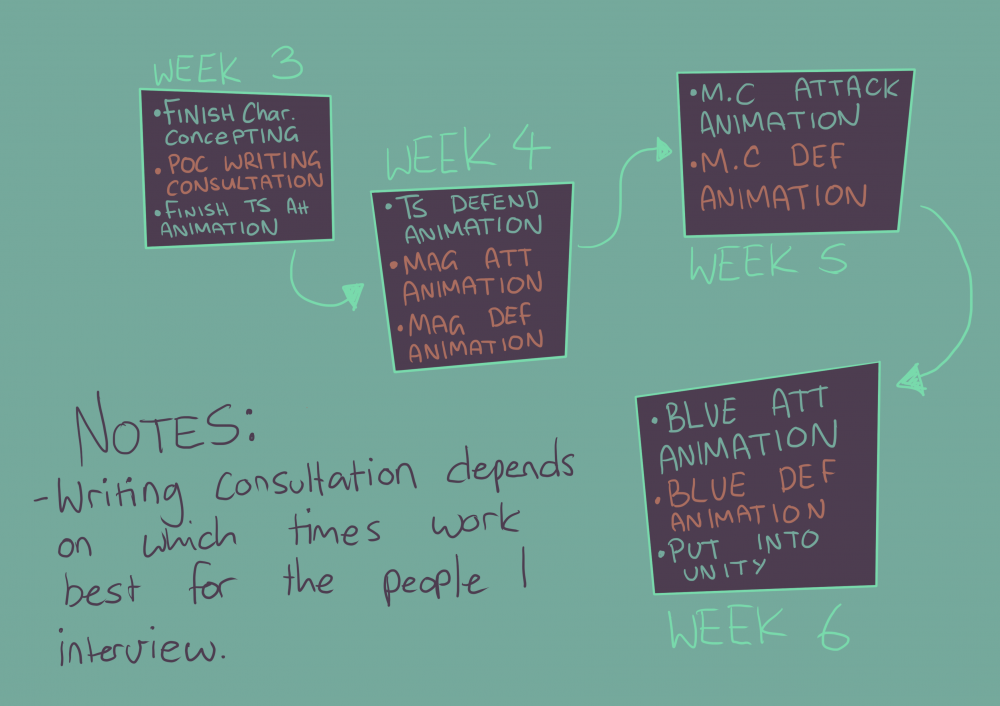 WEEK 3
•FINISH Char.
CONCEPTING
• POC WRITING
CONSULTATION
•FINISH TS Att
ANIMATION
WEEK 4
• TS DEFEND
ANIMATION
• MAG ATT
ANIMATION
• MAG DEF
ANIMATION
•M.C ATTACK
ANIMATION
•M.C DEF
ANIMATION
WEEK 5
•BLUE ATT
ANIMATION
•BLUE DEF
ANIMATION
•PUT INTO
UNITY
WEEK 6
NOTES:
-Writing consultation depends
on which times work
best for the people I
interview.